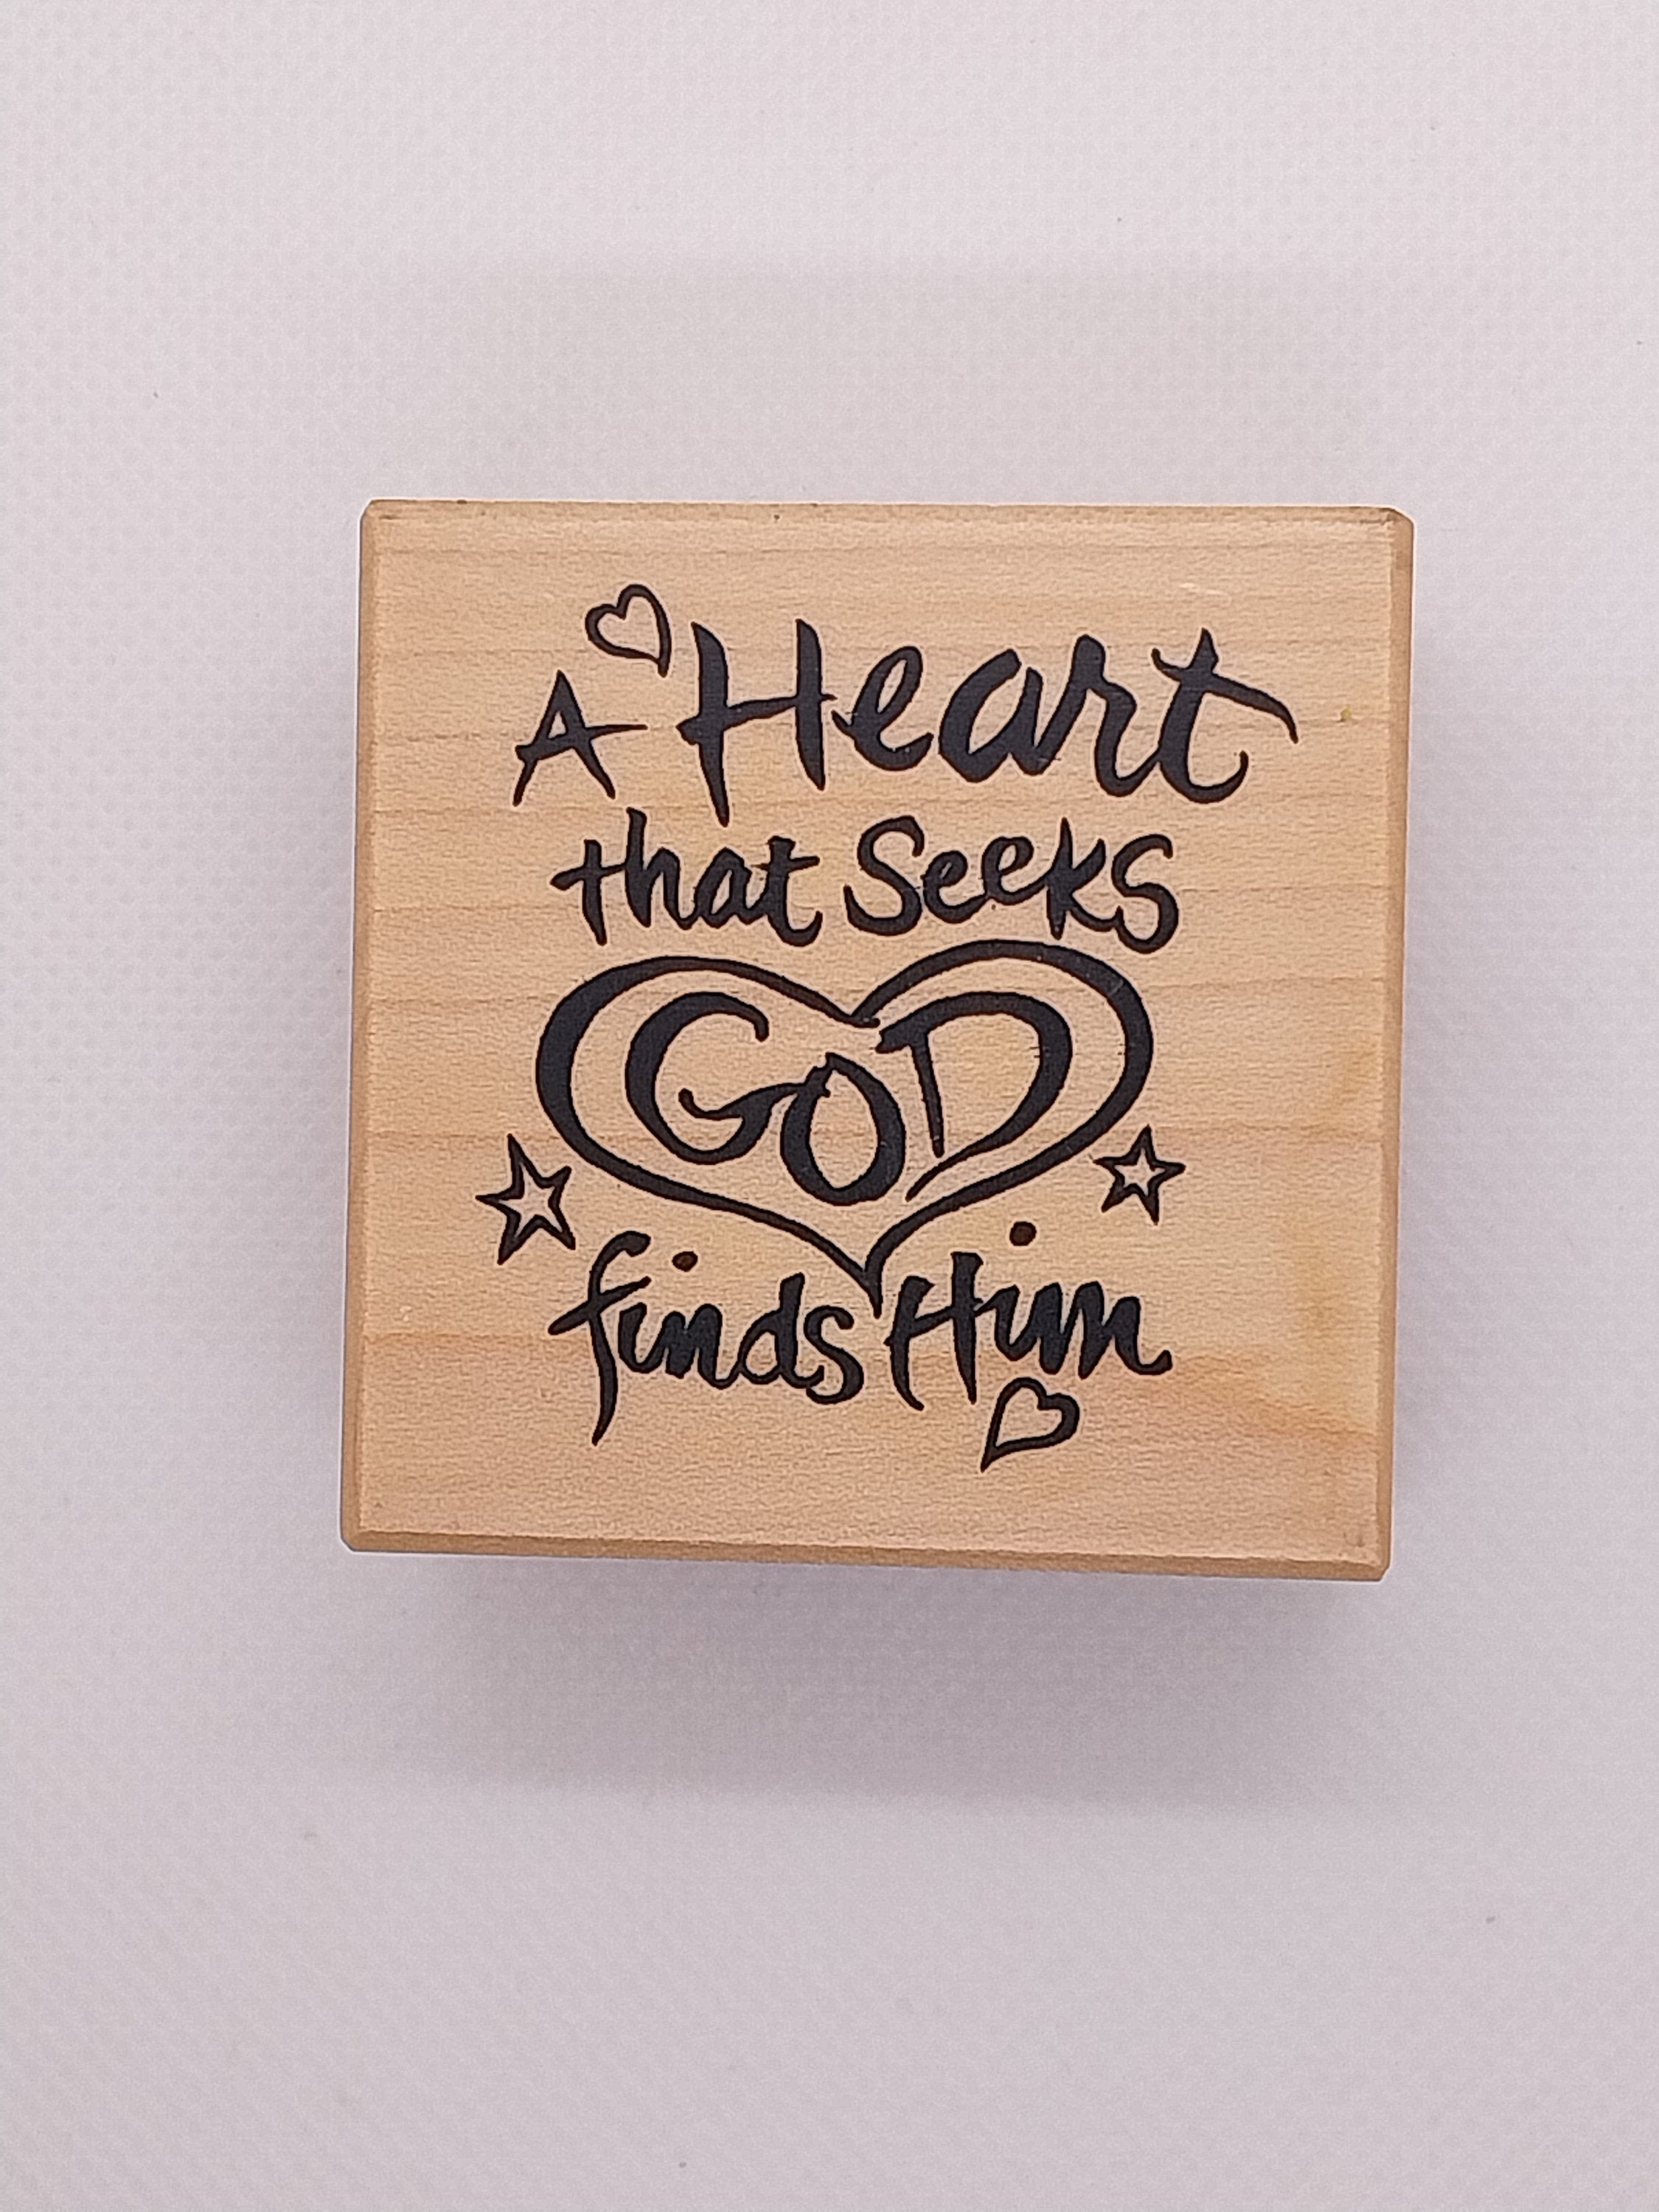 A Heart
that Seeks
GOD
finds Him